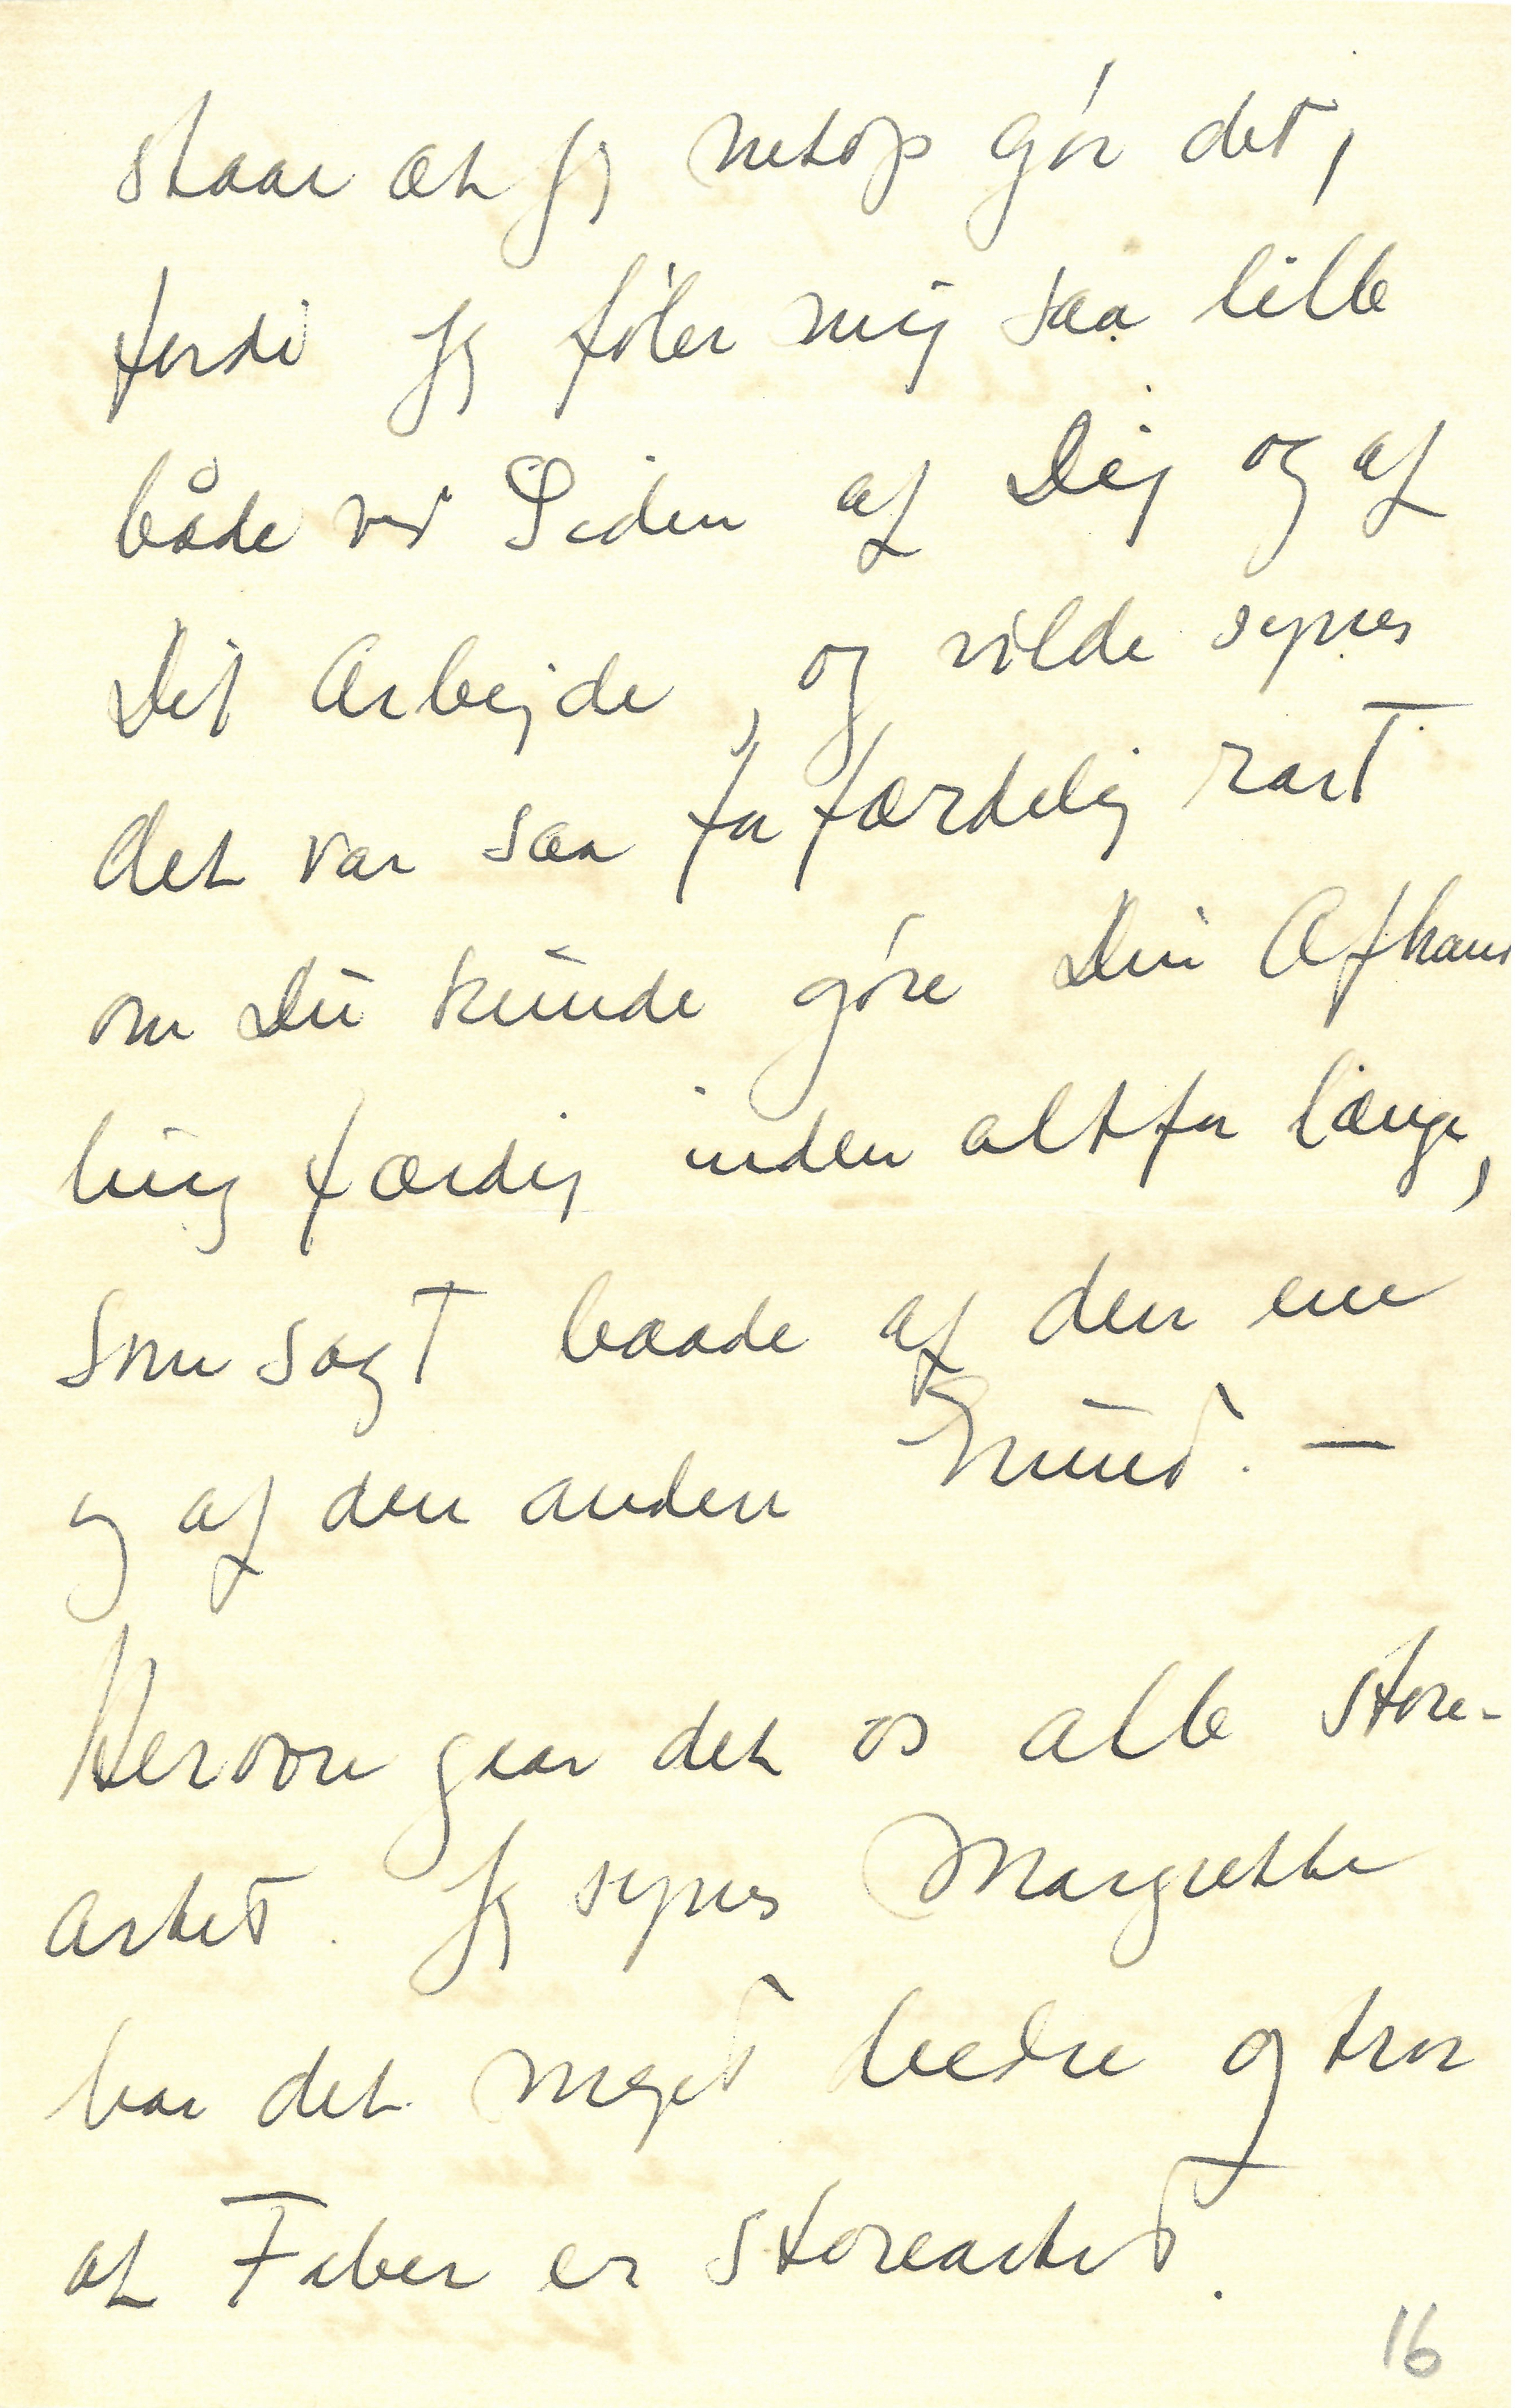 staar at jeg netop gör det,
fordi jeg föler mig saa lille
både ved Siden af Dig og af
Dit Arbejde, og vilde synes
det var saa forfærdelig rart
om Du kunde göre Din Afhand
ling færdig inden altfor længe,
som sagt baade af den ene
og af den anden Grund. —
Herovre gaar det os alle store-
artet. Jeg synes Margrethe
har det meget bedre og tror
at Faber er storeartet.
16